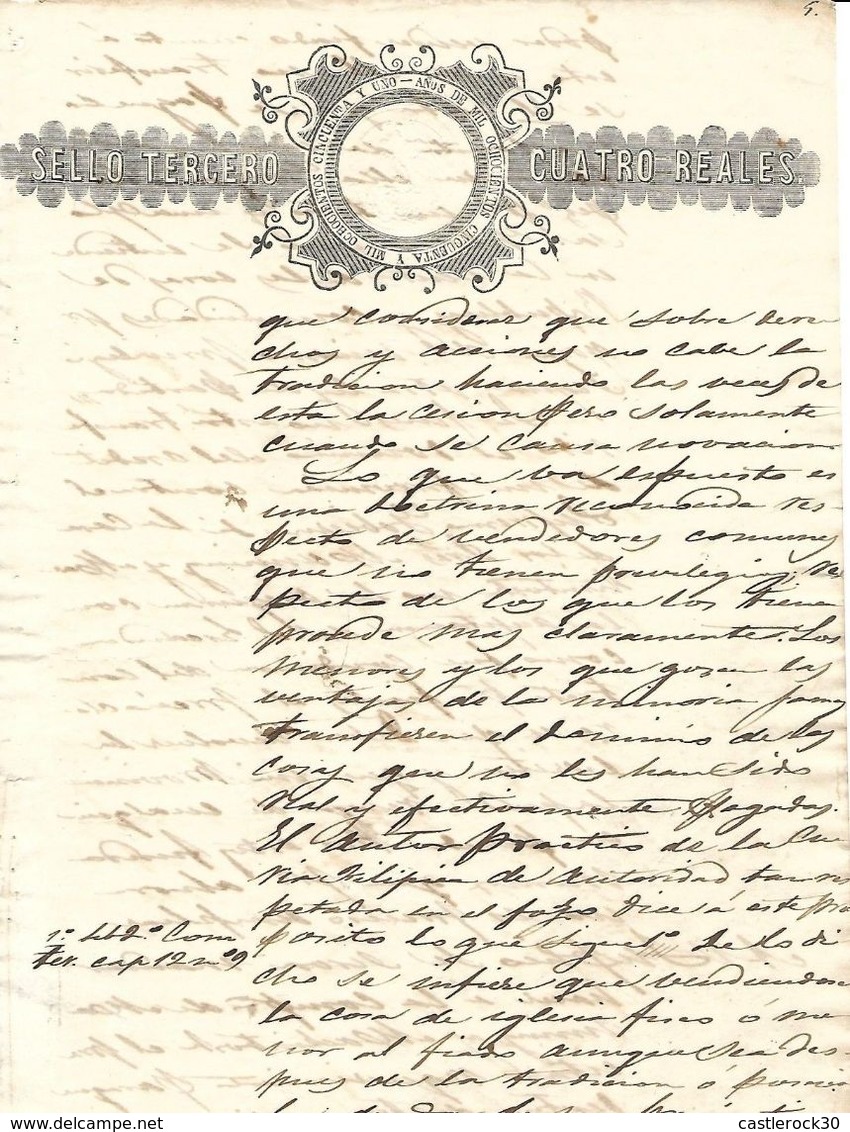 5.
SELLO TERCERO
AÑOS DE MIL OCHOCIENTOS CINCUENTA Y MIL OCHOCIENTOS CINCUENTA Y UNO
CUATRO REALES.
que considerar que sobre dere
chos y acciones no cabe la
tradicion haciendo las veces de
esta la cesion pero solamente
cuando se causa novacion
Lo que va espuesto es
una doctrina reconocida res-
pecto de vendedores comunes
que no tienen privilegios; res
pecto de los que los tiene
procede mas claramente. Los
menores y los que gosan las
ventajas de la menoria jamas
transfieren el dominio de las
cosas que no les han sido
real y efectivamente pagadas.
El autor practico de la Cu
ria Filipica de autoridad tan res
petada en el foro dice á este pro
posito lo que sigue De lo di
Com
ter. cap 12 nº 9
cho se infiere que vendiendose
la cosa de iglesia fisco ó me
nor al fiado aunque sea des-
pues de la tradicion ó posecion